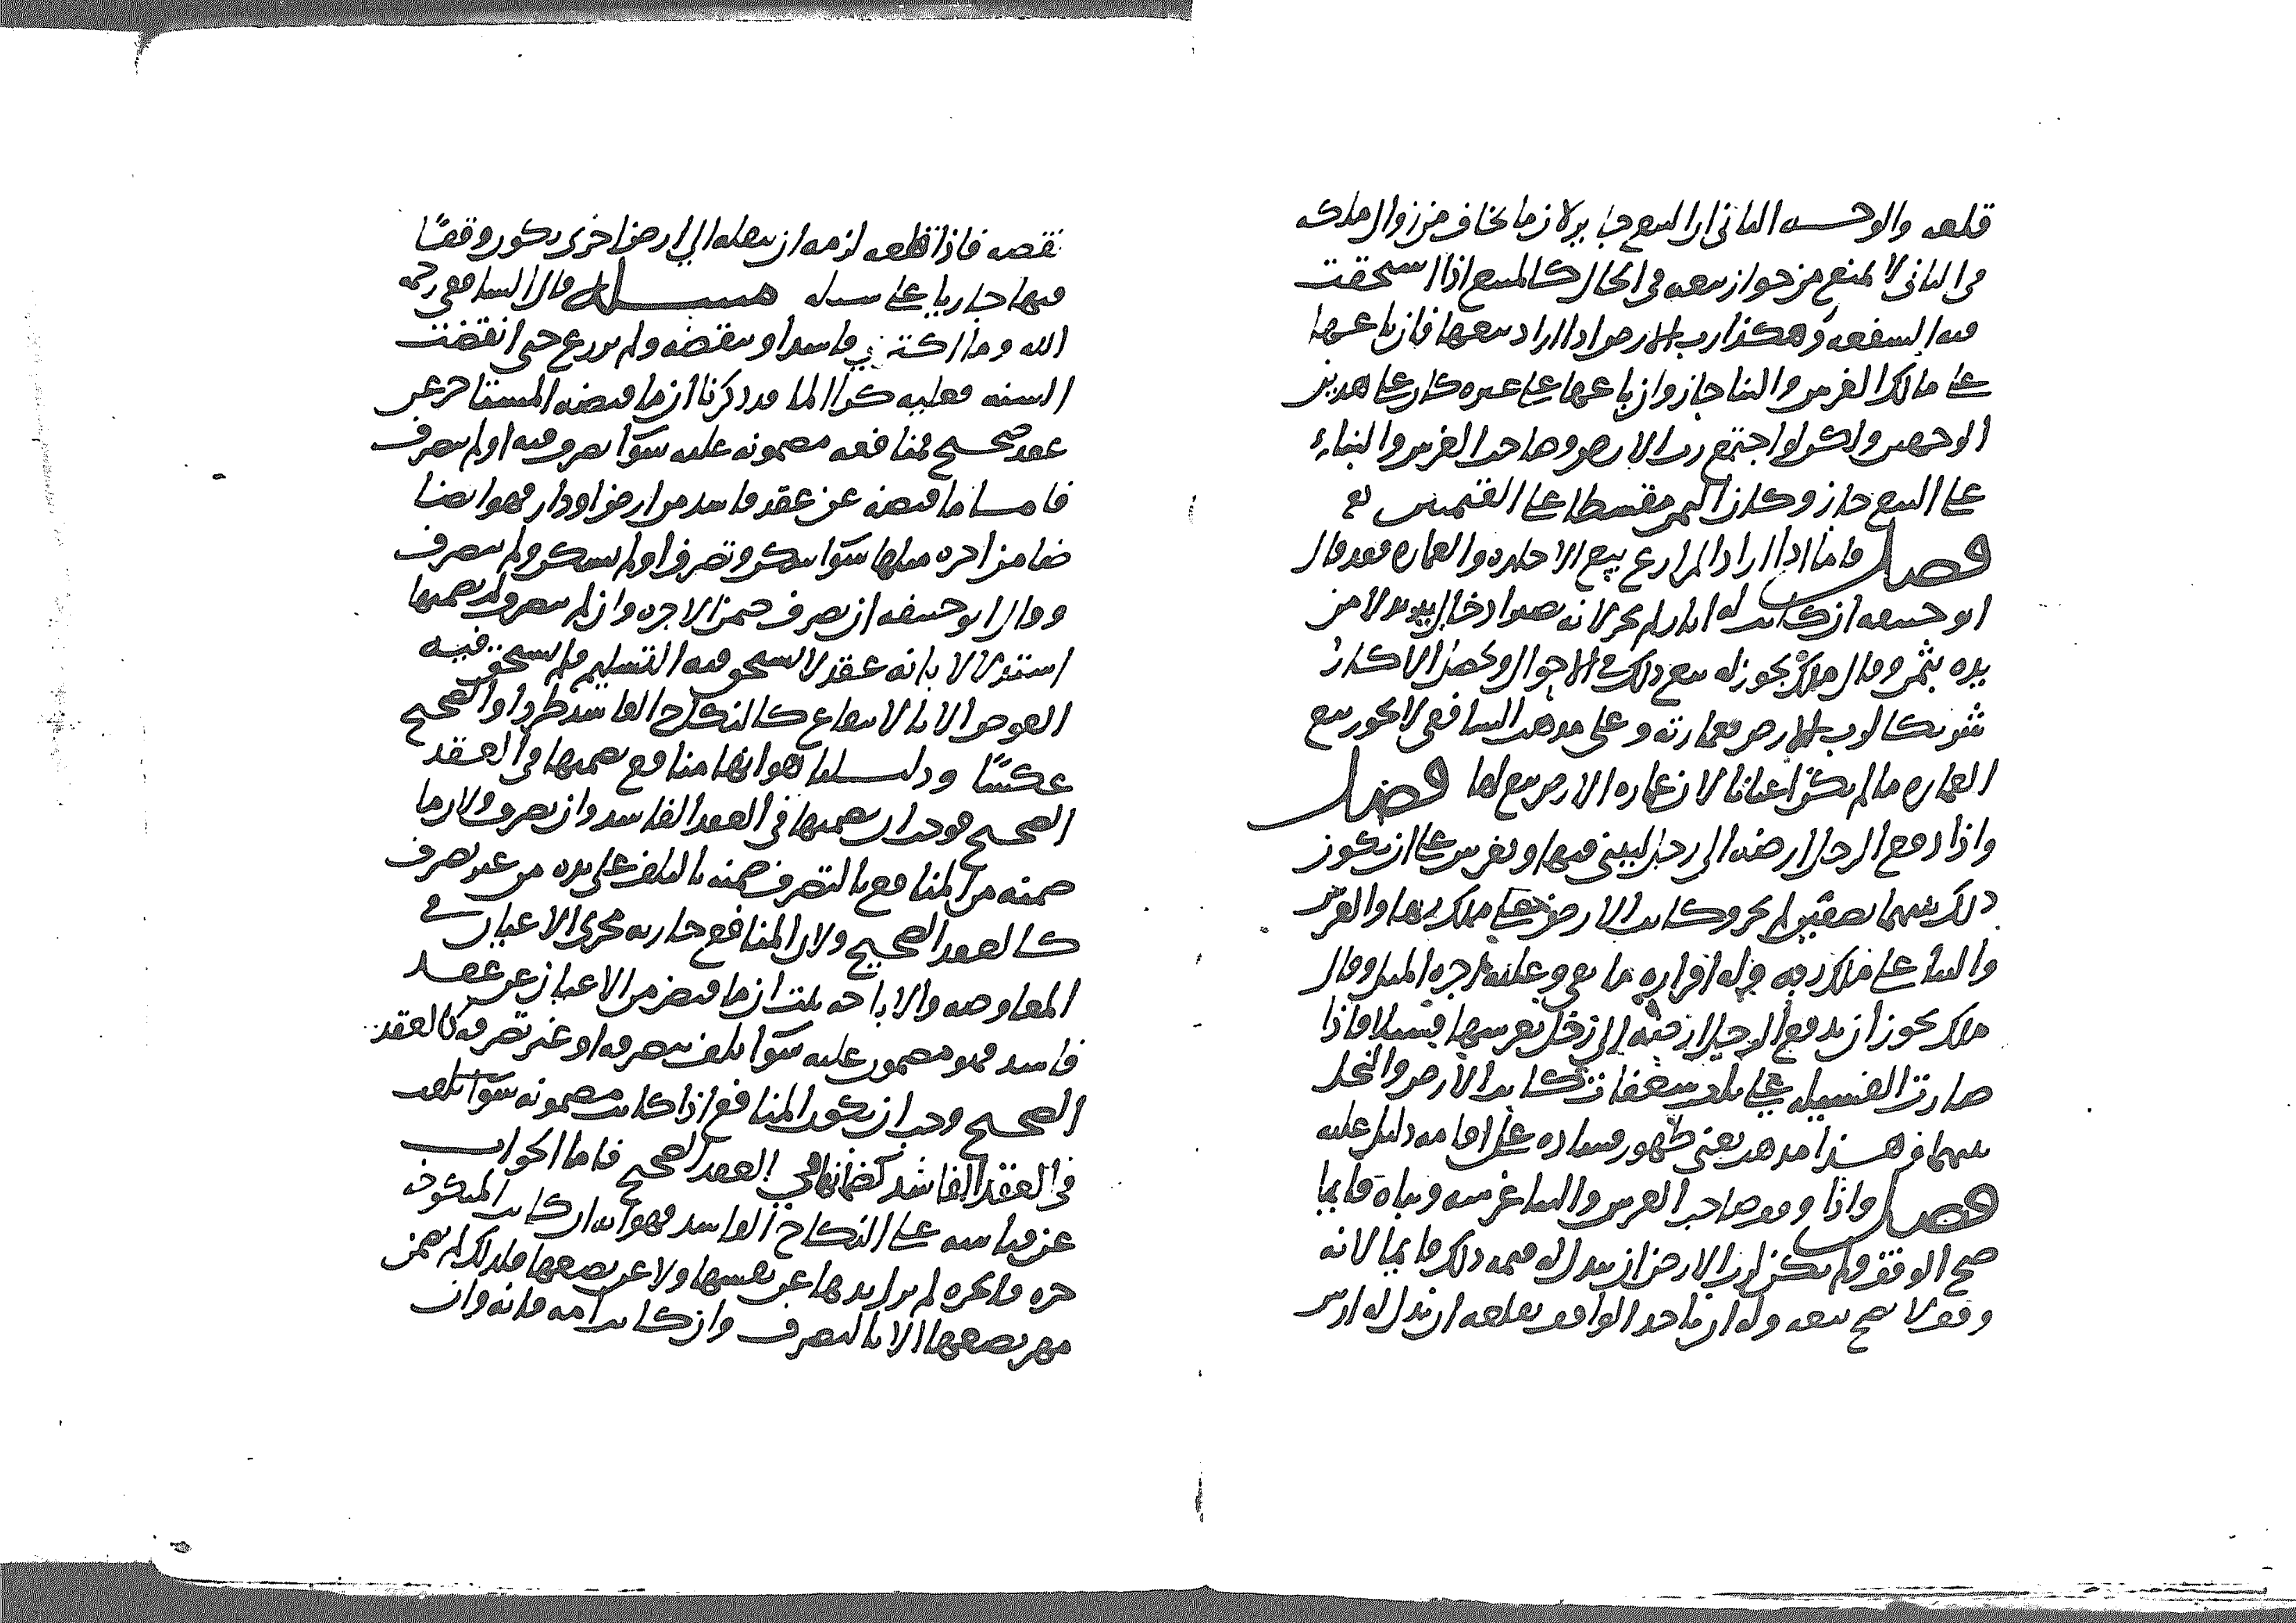 قلعه والوجه الثاني ان البيع جائز لان ما يخاف من زوال ملك
في الثاني لا يمنع من جواز بيعه في الحال كالمبيع اذا استحقت
فيه الشفعة وهكذا رب الارض اذا اراد بيعها فان باعها
على مالك الغرس والبنا جاز وان باعها على غيره كان على هذين
الوجهين ولكن لو اجتمع رب الارض وصاحب الغرس والبناء
على البيع جاز وكان الثمن مقسطا على القيمتين
فصل فاما اذا اراد المزارع بيع الاجارة والعمارة فقد قال
ابو حنيفة ان كانت له اثار لم يجز لانه يصير ادخال يد بدلا من
يده بثمن وقال مالك يجوز له بيع ذلك في الاحوال ويجعل الاكار
شريكا لرب الارض بعمارته وعلى مذهب الشافعي لا يجوز بيع
العمارة ما لم يكن اعيانا لان عمارة الارض تبع لها فصل
واذا دفع الرجل ارضه الى رجل ليبني فيها او يغرس على ان يكون
ذلك بينهما نصفين لم يجز وكانت الارض على ملك ربها والغرس
والبنا على ملك ربه وله اقراره ما بقي وعليه اجرة المثل وقال
مالك يجوز ان يدفع الرجل ارضه الى رجل يغرسها فسيلا فاذا
صارت الفسيل على ثلاث سعفات كانت الارض والنخل
بينهما وهذا مذهب يغني ظهور فساده على اقامة دليل عليه
فصل واذا وقف صاحب الغرس والبنا غرسه وبناه قائما
صح الوقف ولم يكن لرب الارض ان يبذل له قيمة ذلك قائما لانه
وقف لا يصح بيعه وله ان ياخذ الواقف بقلعه ان بذل له ارش
نقصه فاذا قلعه لزمه ان ينقله الى ارض اخرى يكون وقفا
فيها جاريا على سبيله مسألة قال الشافعي رحمه
الله وما اكترى فاسدا وقبضه ولم يزرع حتى انقضت
السنة فعليه كرا المثل قد ذكرنا ان ما قبضه المستاجر عن
عقد صحيح فمنافعه مضمونة عليه سوا تصرف فيه او لم يتصرف
فاما ما قبضه عن عقد فاسد من ارض او دار فهو ايضا
ضامن اجرة مثلها سوا سكن وتصرف او لم يسكن ولم يتصرف
وقال ابو حنيفة ان تصرف ضمن الاجرة وان لم يتصرف لم يضمنها
استدلالا بانه عقد لا يستحق فيه التسليم فلم يستحق فيه
العوض الا بالانتفاع كالنكاح الفاسد طردا والصحيح
عكسا ودليلنا هو انها منافع يضمنها في العقد
الصحيح فوجب ان يضمنها في العقد الفاسد وان تصرف ولان ما
ضمنه من المنافع بالتصرف ضمنه بالتلف على يده من غير تصرف
كالعقد الصحيح ولان المنافع جارية مجرى الاعيان في
المعاوضة والاباحة ثبت ان ما قبض من الاعيان عن عقد
فاسد فهو مضمون عليه سوا تلف بتصرفه او غير تصرفه كالعقد
الصحيح وجب ان يكون المنافع اذا كانت مضمونة سوا تلفت
في العقد الفاسد كضمانها في العقد الصحيح فاما الجواب
عن قياسه على النكاح الفاسد فهو انه ان كانت المنكوحة
حرة فالحرة لم يزل يدها عن نفسها ولا عن بضعها فلذلك لم يضمن
مهر بضعها الا بالتصرف وان كانت امة فانه وان